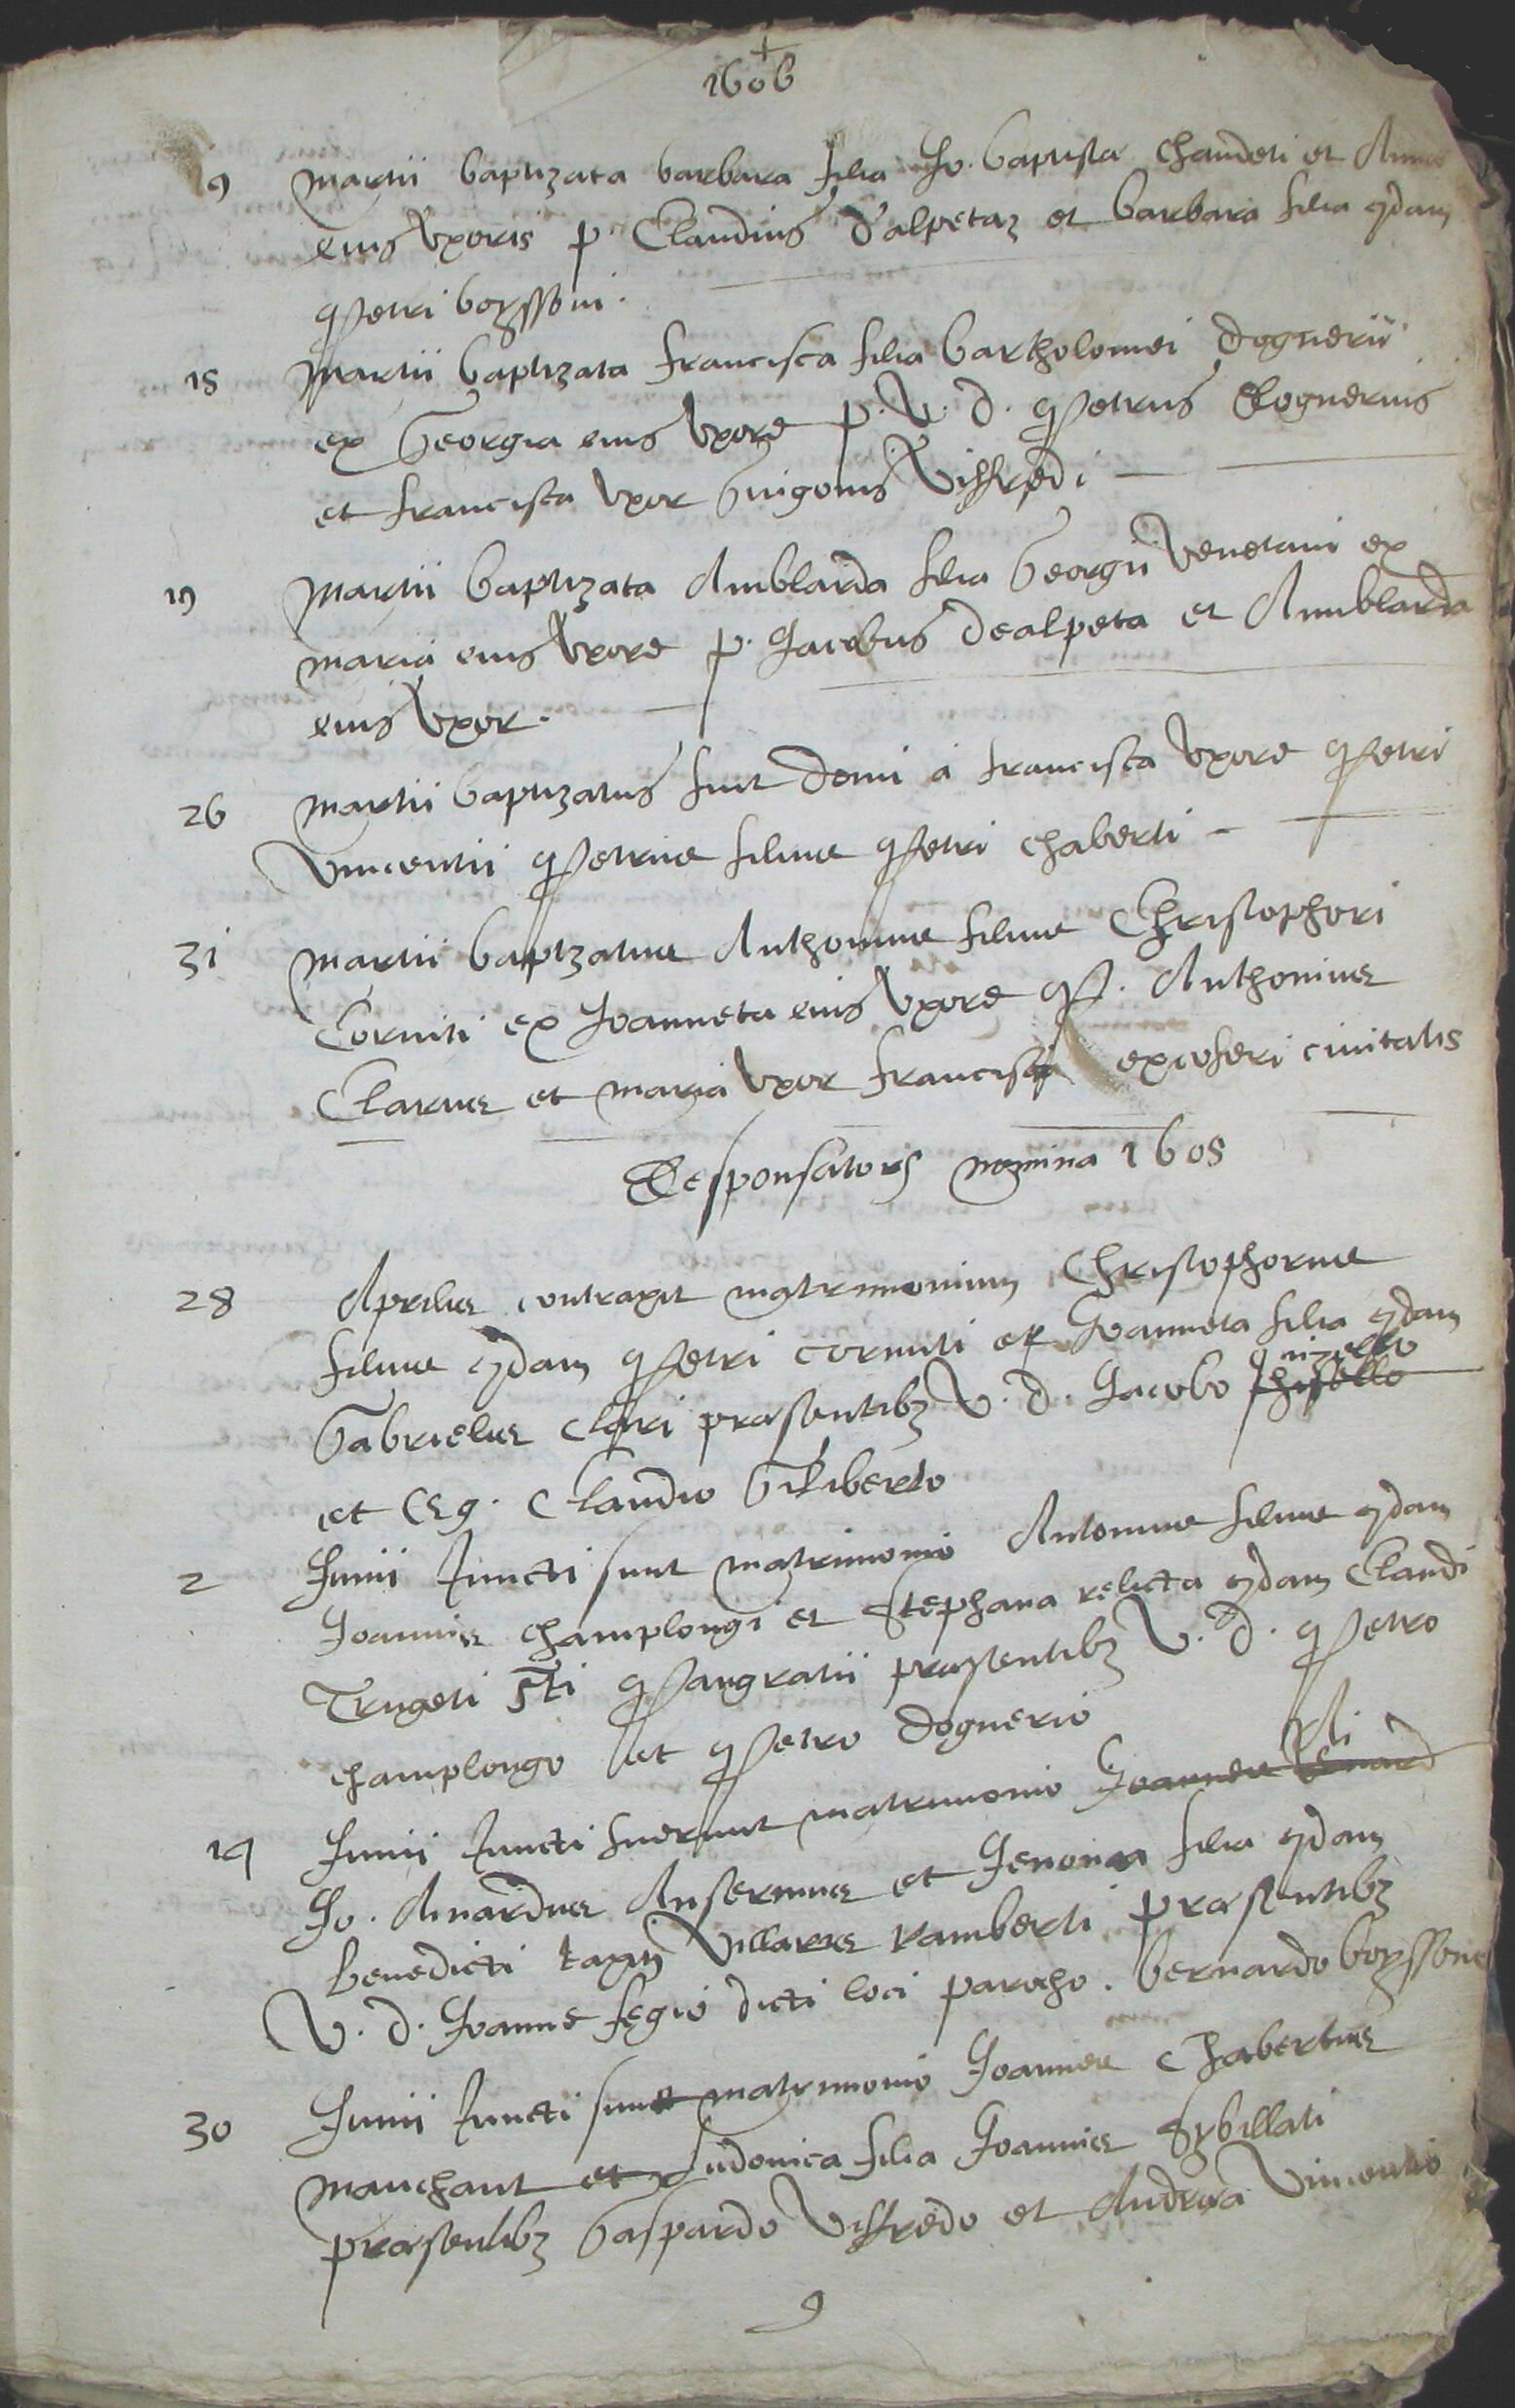 1606
9 Martii baptizata barbara filia Jo. baptistae Chaudeti et Annae
eius Uxoris p. Claudius d'alpetaz et barbara filia qdam
Petri boyssoni.
15 Martii baptizata francisca filia bartholomei dognerii
ex Georgia eius Uxore p. V. d. Petrus Dognerius
et francisca Uxor Guigonis Viffredi
19 Martii baptizata Amblarda filia Georgii Venetani ex
maria eius Uxore p. Jacobus dealpeta et Amblarda
eius Uxor.
26 Martii baptizatus fuit domi à francisca Uxore Petri
Vincentii Petrus filius Petri Chaberti
31 Martii baptizatus Anthonius filius Christophori
Cornuti ex Joanneta eius Uxore P. Anthonius
Clarus et maria Uxor francisci excoferi civitatis
Desponsator nomina 1605
28 Aprilis contraxit matrimonium Christophorus
filius qdam Petri cornuti et Joanneta filia qdam
Gabrielis Clari praesentibz V. d. Jacobo
et Eg. Claudio Giliberto
2 Junii Juncti sunt matrimonio Antonius filius qdam
Joannis Champlongi et Stephana relicta qdam Claudi
Trugeti sti Pangratii praesentibz V. d. Petro
Champlongo et Petro dognerio
14 Junii Juncti fuerunt matrimonio
Jo. Ainardus Ansermus et Jenona filia qdam
benedicti taxit Villaris ramberti praesentibz
V. d. Joanne fegio dicti loci parocho. bernardo boyssone
30 Junii Juncti sunt matrimonio Joannes Chabertus
mauchant et Ludovica filia Joannis Sybillati
praesentibz Gaspardo Viffredo et Andrea Vincentio
9